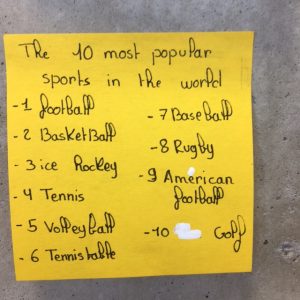 The 10 most popular
sports in the world
-1 football
-2 BasketBall
-3 ice Hockey
-4 Tennis
-5 Volleyball
-6 Tennis table
-7 Baseball
-8 Rugby
-9 American
football
-10 Golf